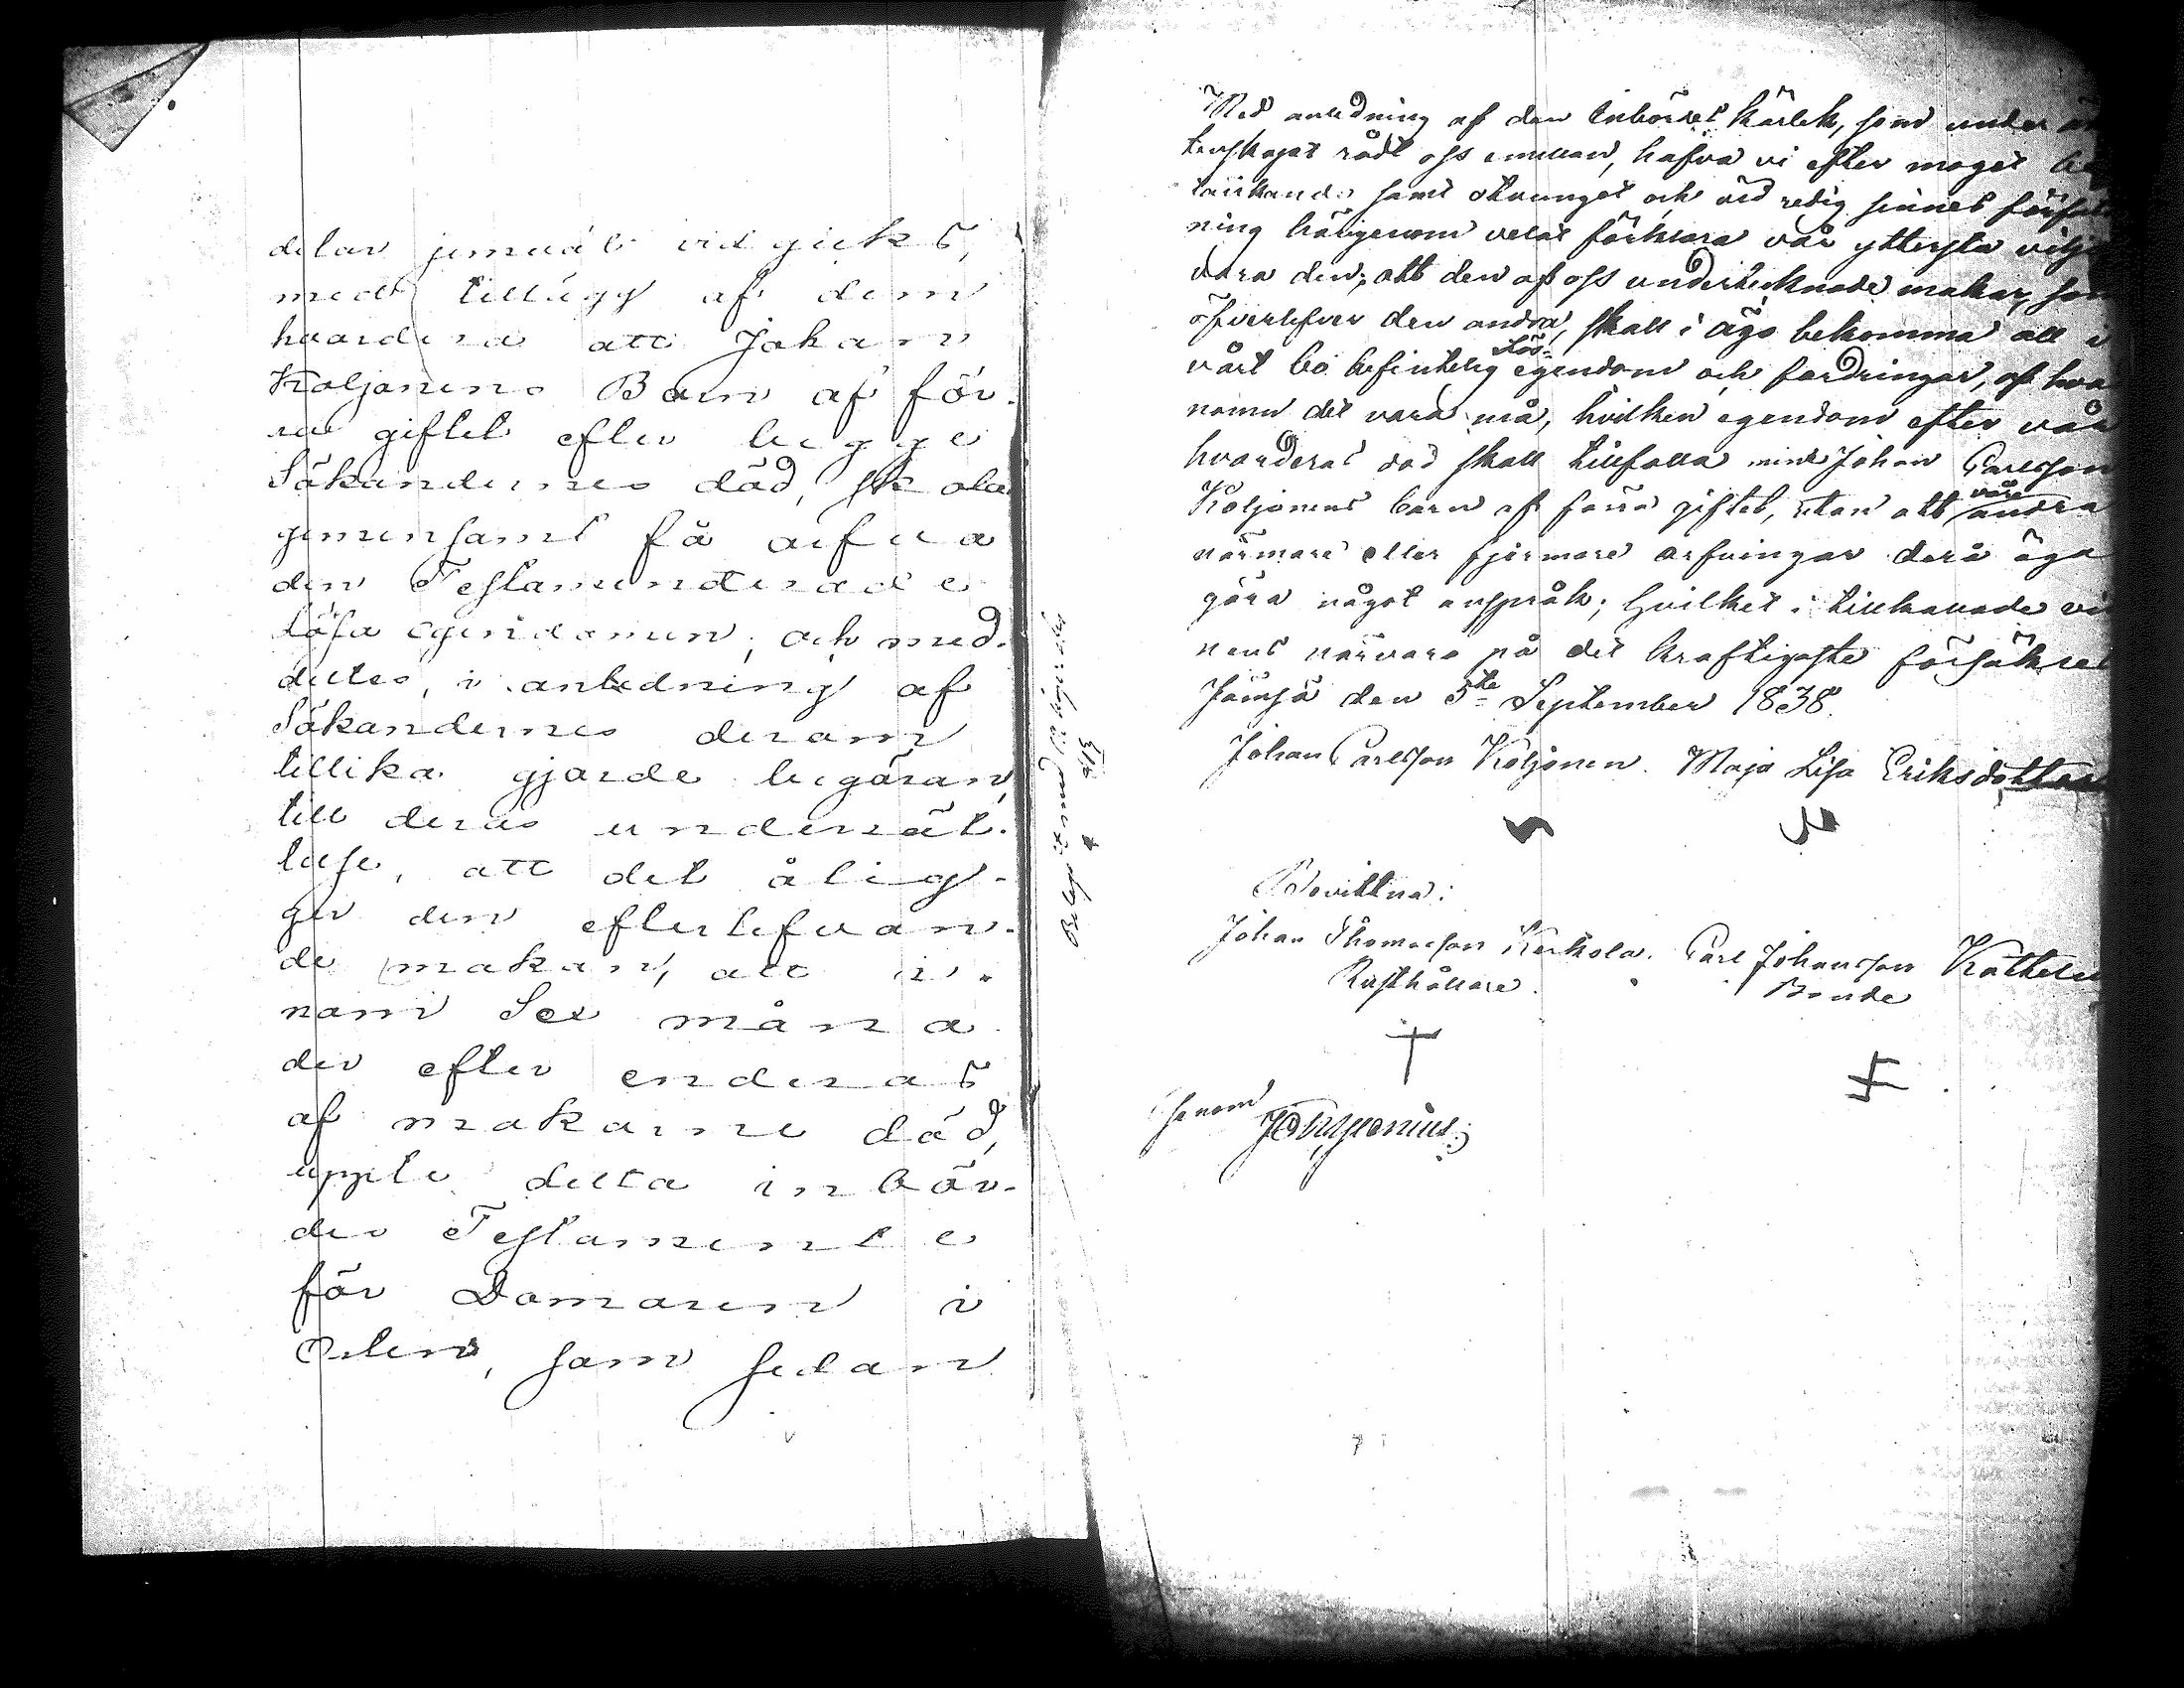 delar jemväl vidgicks,
med tillägg af dem
hvardera att Johan
Koljonens Barn af för-
ra giftet efter begge
Sökandernes död, skola
gemensamt få ärfva
den Testamenterade
lösa egendomen; och med-
deltes, i anledning af
Sökandernes derom
tillika gjorde begäran,
till deras underrät-
telse, att det ålig-
ger den efterlefvan-
de makan, att in-
nom Sex måna
der efter enderas
af makarne död,
uppte detta inbör-
des Testamente
för Domaren i
Orten, som sedan
Med anledning af den inbördes kärlek, som under
tenskapet rådt oss emellan, hafva vi efter moget be
tänkande samt otvunget och vid redig sinnes författ
ning härigenom velat förklara vår yttersta vilja
vara den, att den af oss undertecknade makar, som
öfverlefver den andra, skall i ägo bekomma all i
vårt bo befintelig lös- egendom och fordringar, af hva
namn det vara må, hvilken egendom efter vår
hvarderas död skall tillfalla mine Johan Carlsson
Koljonens barn af förra giftet, utan att våre andra
närmare eller fjermare arfvingar derå äga
göra något anspråk; hvilket i tillkallade vit
nens närvaro på det kraftigaste försäkras
Jämsä den 5te September 1838.
Johan Carlsson Koljonen. Maja Lisa Eriksdotter
Bevittna:
Johan Thomasson Kerkola. Carl Johansson
Rusthållare. Bonde
genom